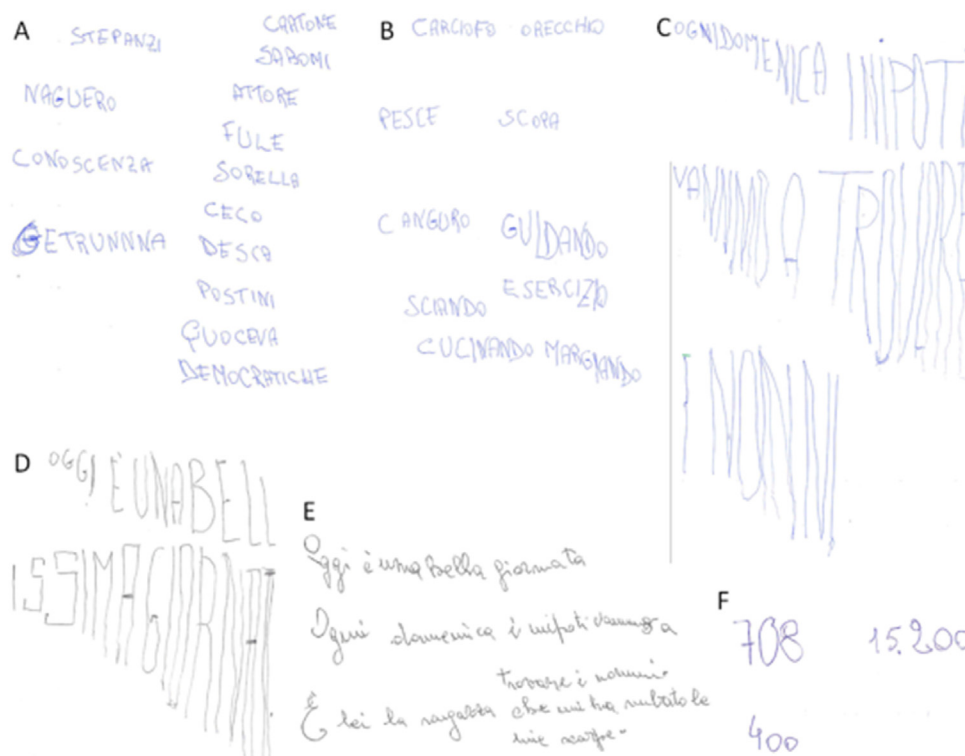 A
STEPANZI
NAGUERO
CONOSCENZA
GETRUNNNA
CARTONE
SABOMI
ATTORE
FULE
SORELLA
CECO
DESCA
POSTINI
QUOCEVA
DEMOCRATICHE
B
CARCIOFO ORECCHIO
PESCE SCOPA
CANGURO GUIDANDO
SCIANDO ESERCIZIO
CUCINANDO MARGIANDO
C
OGNIDOMENICA INIPOTI
VANNNO A TROVARE
I NONNI
D
OGGI È UNABELL
ISSIMAGIORNAT
E
Oggi è una bella giornata
Ogni domenica i nipoti vanno a
trovare i nonni.
È lei la ragazza che mi ha rubato le
mie scarpe.
F
708 15.200
400